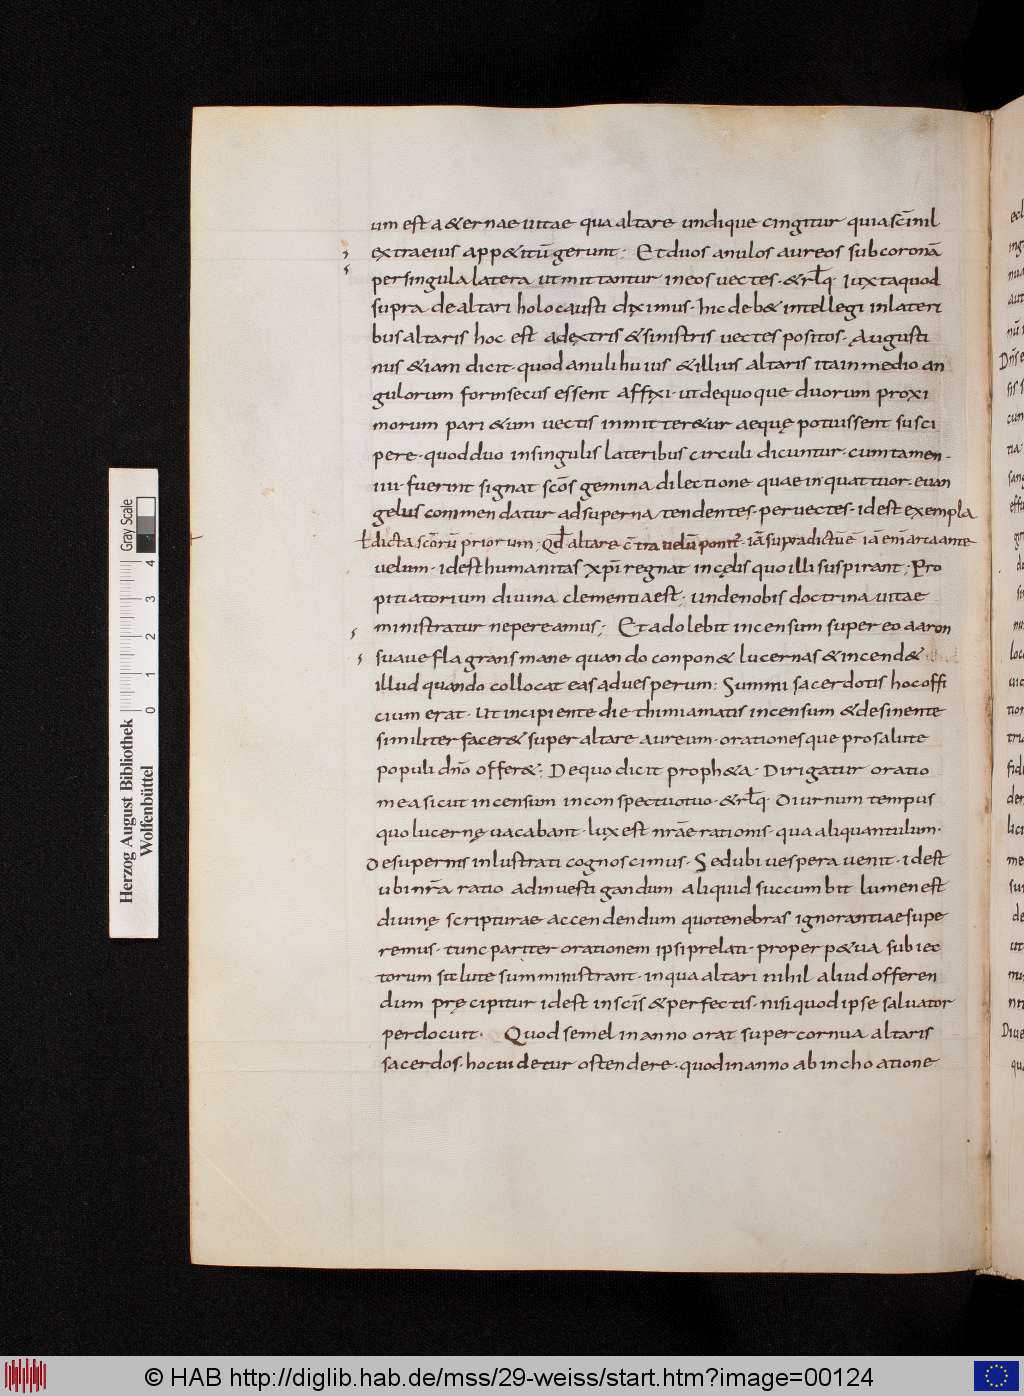 um est a&ernae uitae qua altare undique cingitur quia sc̄i nil
extra eius app&itū gerunt· Et duos anulos aureos sub coronā
per singula latera ut mittantur in eos uectes·&rłq· Iuxta quod
supra de altari holocausti diximus· hic deb& intellegi in lateri
bus altaris hoc est a dextris & sinistris uectes positos· Augusti
nus &iam dicit· quod anuli huius & illius altaris ita in medio an
gulorum forinsecus essent affixi· ut de quoque duorum proxi
morum pari &iam uectis inmitter&ur aeque potuissent susci
pere· quod duo in singulis lateribus circuli dicuntur· cum tamen·
iiii· fuerint signat sc̄os gemina dilectione quae in quattuor euan
geliis commendatur ad superna tendentes· per uectes· id est exempla
ł dicta sc̄orū priorum· Qđ altare c̄tra uelū ponit̄· iā supra dictū ē iā eni arca ante
uelum· id est humanitas xp̄i regnat in cęlis quo illi suspirant; Pro
pitiatorium diuina clementia est; unde nobis doctrina uitae
ministratur ne pereamus; Et adolebit incensum super eo aaron
suaue flagrans mane quando conpon& lucernas & incend&·
illud quando collocat eas ad uesperum: Summi sacerdotis hoc offi
cium erat· Ut incipiente die thimiamatis incensum & desinente
similiter facer& super altare aureum· orationesque pro salute
populi dn̄o offer&; De quo dicit proph&a· Dirigatur oratio
mea sicut incensum in conspectu tuo·&rłq· Diurnum tempus
quo lucernę uacabant· lux est nrāe rationis· qua aliquantulum·
Desupernis inlustrati cognoscimus· Sed ubi uespera uenit· id est
ubi nrā ratio ad inuestigandum aliquid succumbit lumen est
diuinę scripturae accendendum quo tenebras ignorantiae supe
remus· tunc pariter orationem ipsi prelati· pro perp&ua subiec
torum salute sumministrant· in qua altari nihil aliud offeren
dum pręcipitur id est in sc̄is & perfectis· nisi quod ipse saluator
perdocuit· Quod semel in anno orat super cornua altaris
sacerdos· hoc uidetur ostendere· quod in anno ab inchoatione
Herzog August Bibliothek
Wolfenbüttel
0 1 2 3 4
Gray Scale
© HAB http://diglib.hab.de/mss/29-weiss/start.htm?image=00124